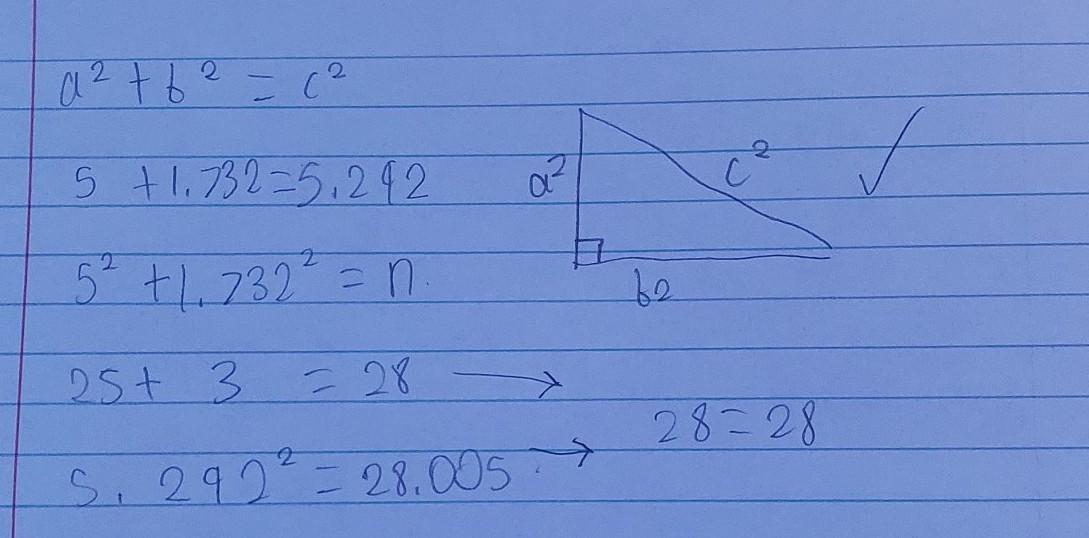 a² + b² = c²
5 + 1.732 = 5.292
a²
c²
✓
5² + 1.732² = n.
b2
25 + 3 = 28 →
28 = 28
5.292² = 28.005 →